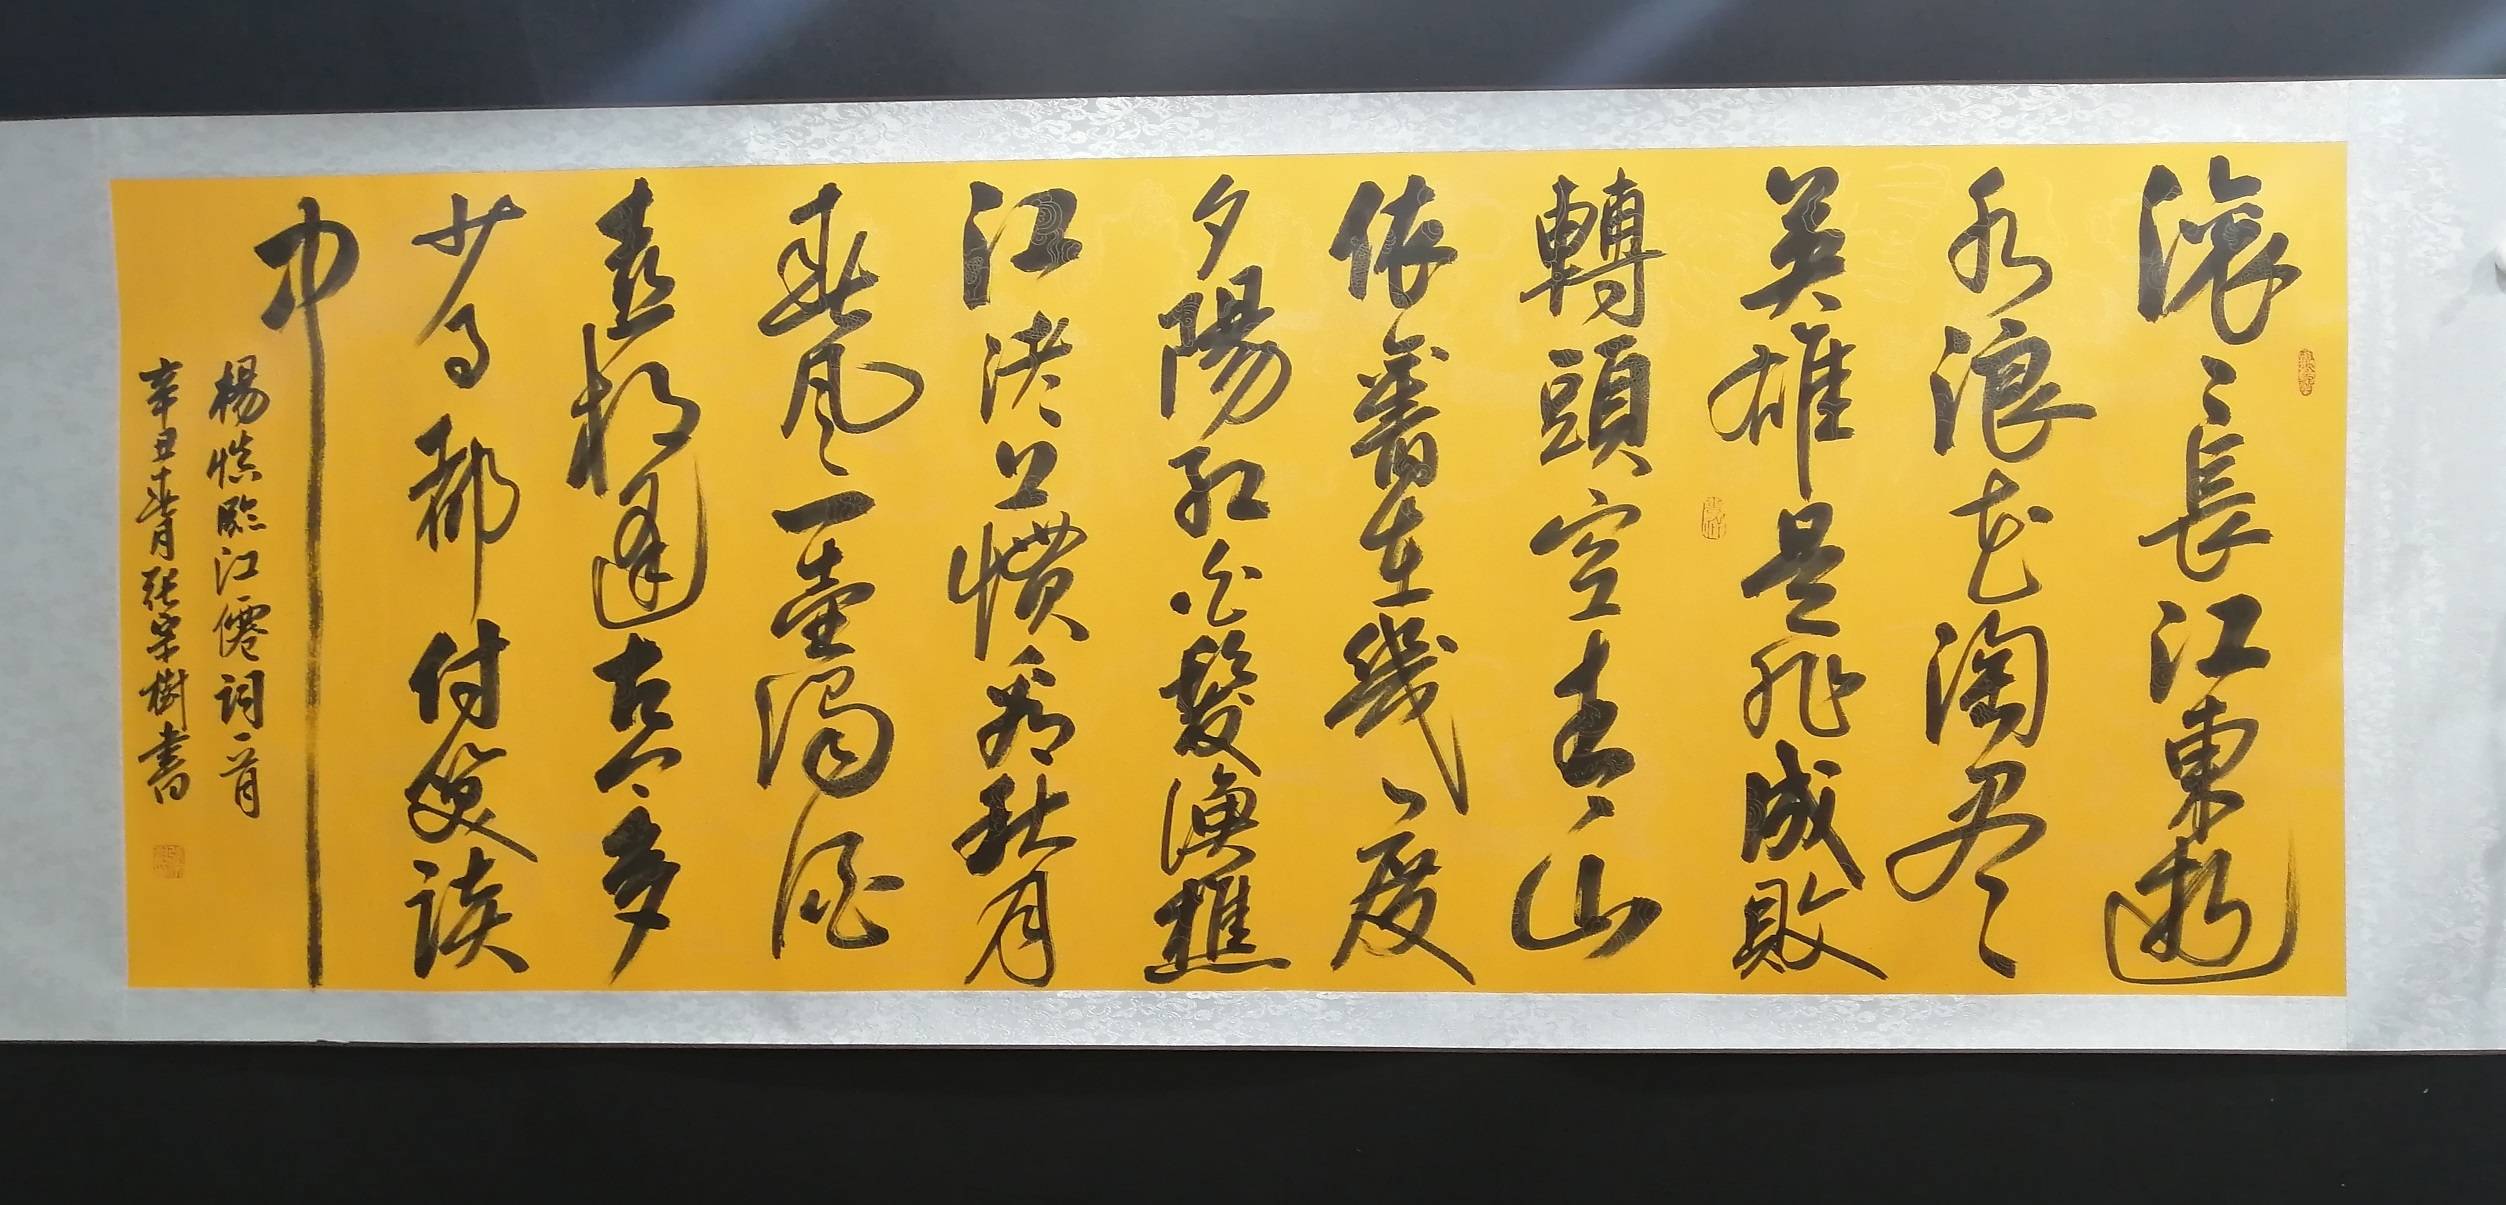 滾〻長江東逝
水浪花淘尽
英雄是非成敗
轉頭空青山
依舊在幾度
夕陽紅白髮漁樵
江渚上慣看秋月
春風一壺濁酒
喜相逢古今多
少事都付笑談
中
楊慎臨江僊詞一首
辛丑春月張宗樹書